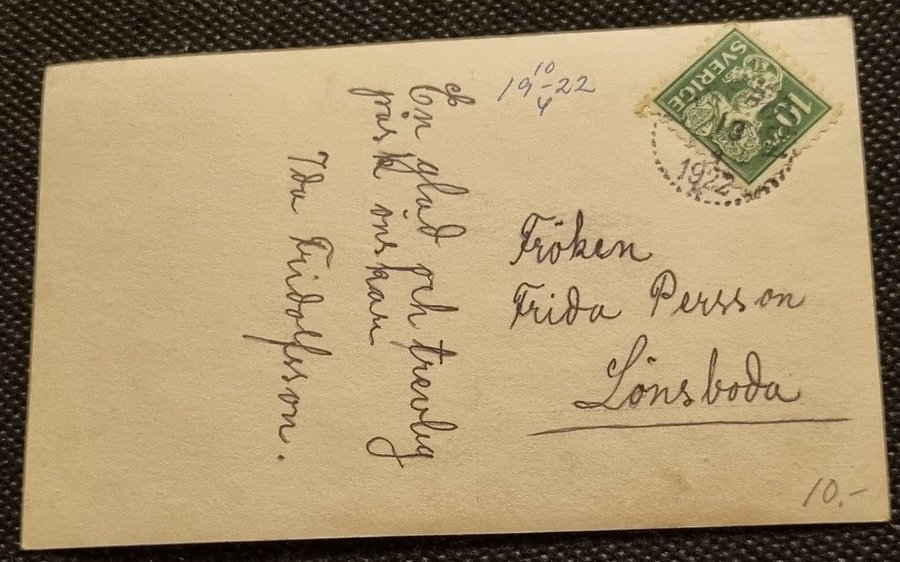 19 10/4 -22
SVERIGE
10 ÖRE
1922
En glad och trevlig
påsk önskar
Ida Fridolfsson.
Fröken
Frida Persson
Lönsboda
10.-